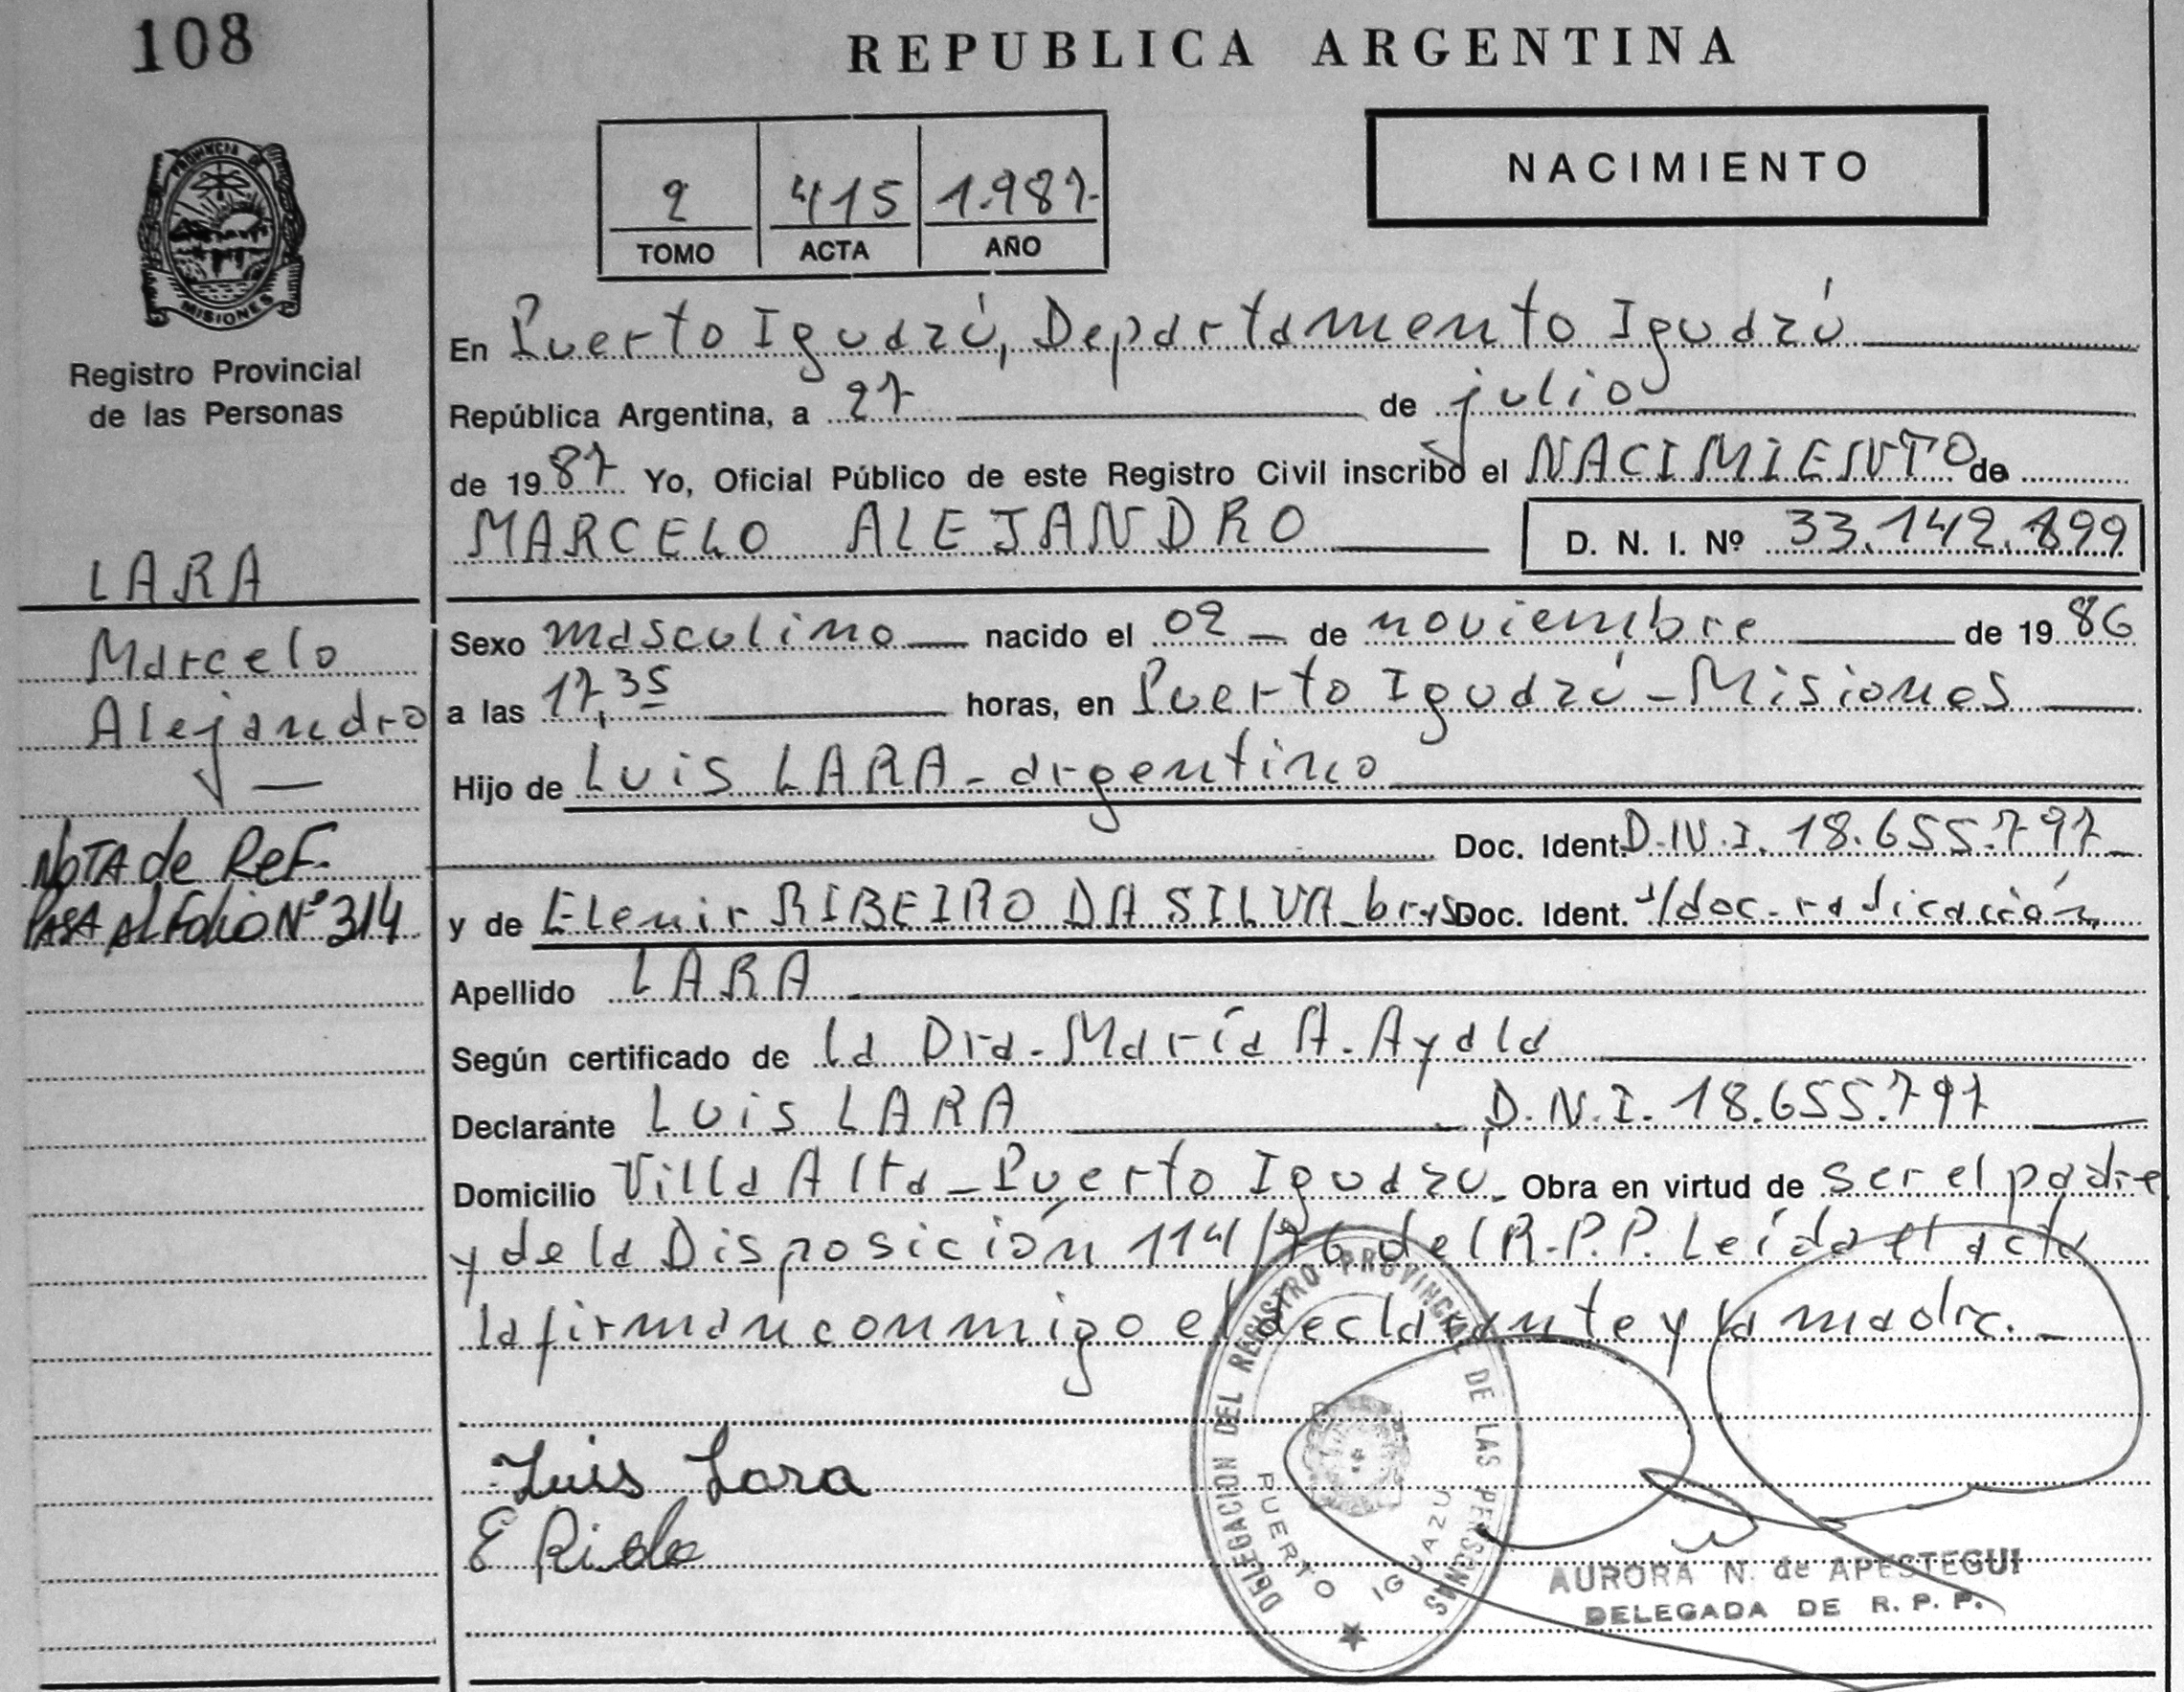 108
REPUBLICA ARGENTINA
PROVINCIA DE
MISIONES
Registro Provincial
de las Personas
2 415 1.987-
TOMO ACTA AÑO
NACIMIENTO
En Puerto Iguazú, Departamento Iguazú
República Argentina, a 27 de julio
de 1987 Yo, Oficial Público de este Registro Civil inscribo el NACIMIENTO de
MARCELO ALEJANDRO D. N. I. Nº 33.142.899
LARA
Marcelo
Alejandro
NOTA de ReF.
PASA AL Folio Nº 314
Sexo masculino nacido el 02 de noviembre de 1986
a las 17,35 horas, en Puerto Iguazú - Misiones
Hijo de Luis LARA - argentino
Doc. Ident. D.N.I. 18.655.797
y de Elenir RIBEIRO DA SILVA - bras Doc. Ident. s/doc. radicación
Apellido LARA
Según certificado de la Dra. María A. Ayala
Declarante Luis LARA D.N.I. 18.655.797
Domicilio Villa Alta - Puerto Iguazú. Obra en virtud de ser el padre
y de la Disposición 114/76 del R.P.P. Leída el acta
la firman conmigo el declarante y la madre.
Luis Lara
DELEGACION DEL REGISTRO PROVINCIAL DE LAS PERSONAS
PUERTO IGUAZU
AURORA N. de APESTEGUI
DELEGADA DE R. P. P.